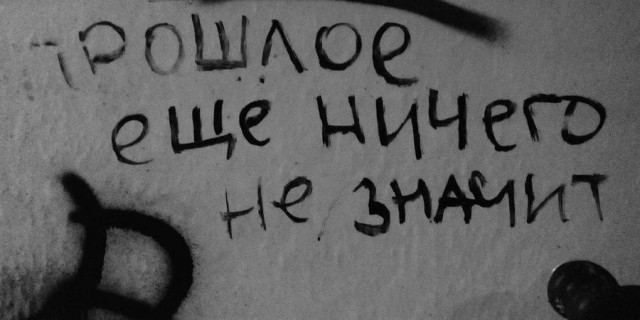 прошлое
еще ничего
не значит